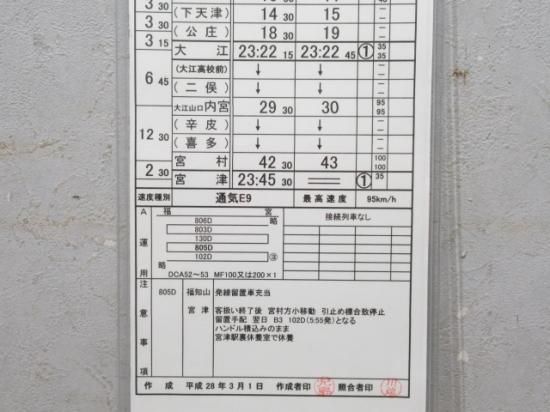 3 30
(下天津) 14 30 15
3 30
(公庄) 18 30 19
3 15
大江 23:22 15 23:22 45 ① 35 35
6 45
(大江高校前) ↓ ↓
(二俣) ↓ ↓
大江山口内宮 29 30 30 95 95
12 30
(辛皮) ↓ ↓
(喜多) ↓ ↓
宮村 42 30 43 100 100
2 30
宮津 23:45 30 ① 35
速度種別 通気E9 最高速度 95km/h
A運用 福 宮 接続列車なし
806D 略
803D
130D
805D
102D
略
DCA52〜53 MF100又は200×1
注意事項
805D 福知山 発線留置車充当
宮津 客扱い終了後 宮村方小移動 引止め標合致停止
留置手配 翌日 B3 102D(5:55発)となる
ハンドル積込みのまま
宮津駅裏休養室で休養
作成 平成28年3月1日 作成者印 照合者印